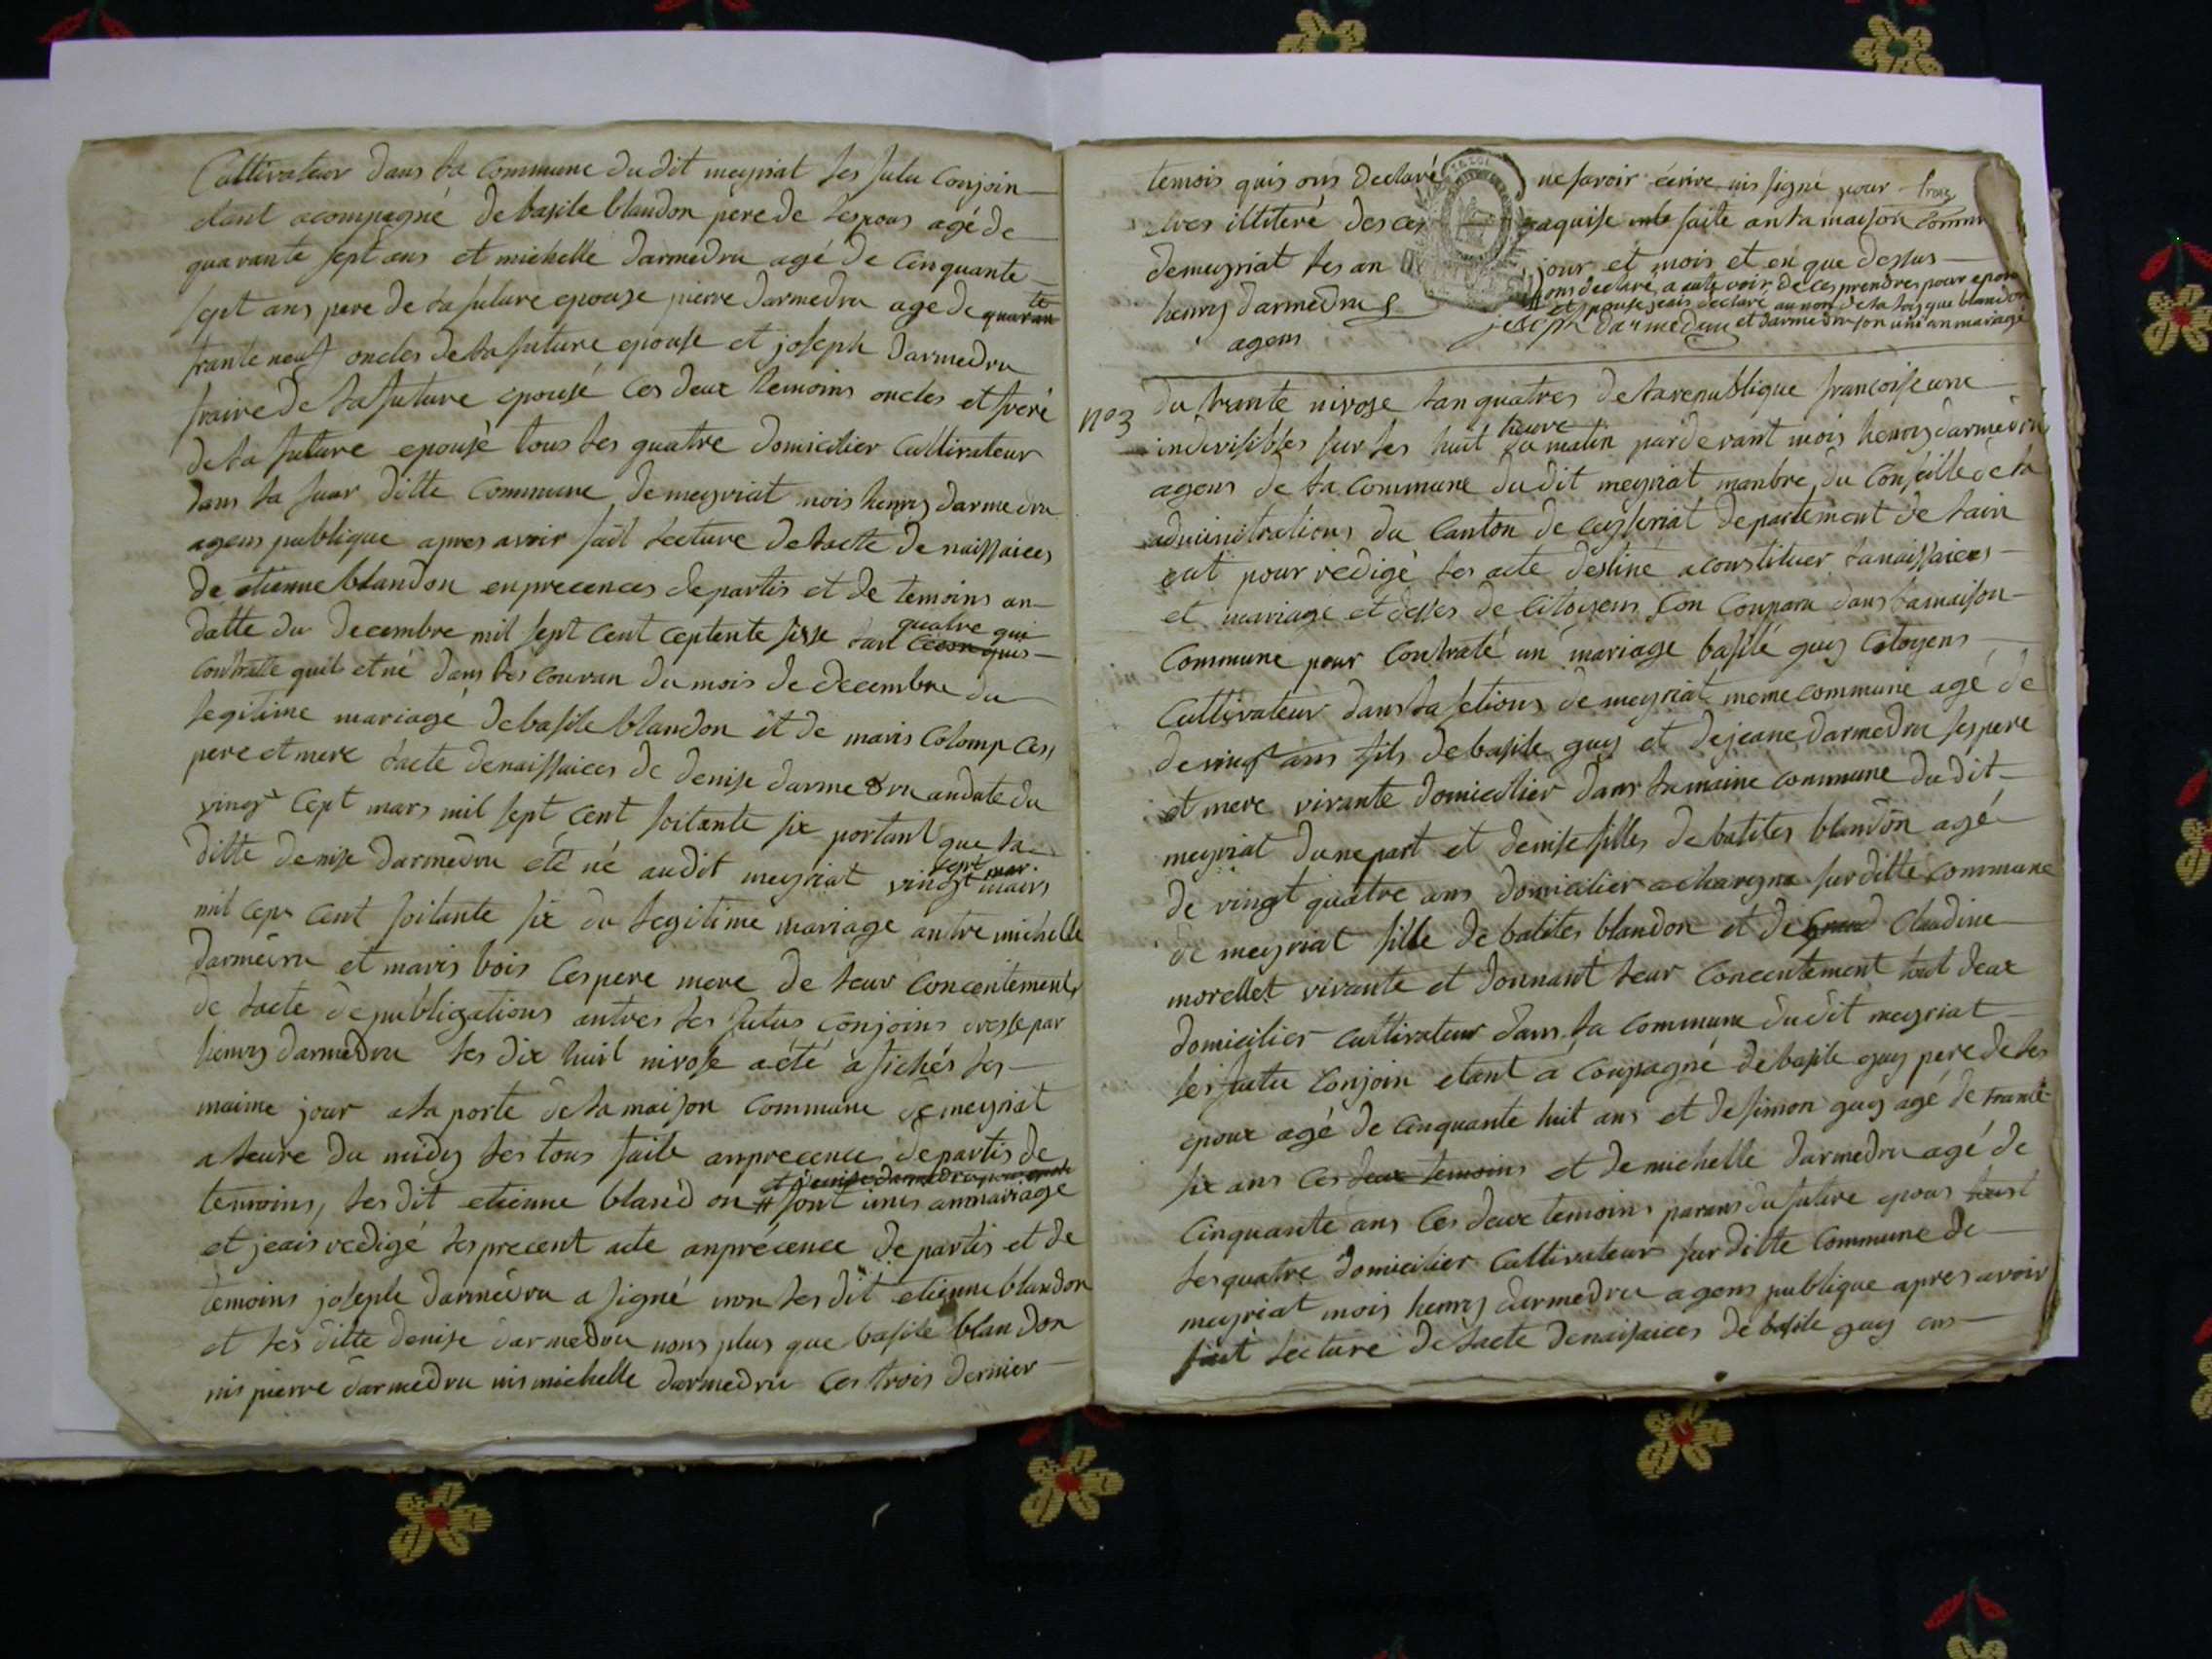 Cultivateur dans la commune du dit meyriat les futu conjoin
etant acompagné de basile blandon pere de lespous agé de
quarante sept ans et michelle darmedru agé de cinquante
sept ans pere de la future epouse pierre darmedru age de quaran
trante neuf oncles de la future epouse et joseph darmedru
fraire de la future epouse ces deux temoins oncles et freré
de la future epouse tous les quatre domicilier cultivateur
dans la suar ditte commune de meyriat mois henry darmedru
agens publique apres avoir fait lecture de lacte de naissaices
de etienne blandon en precences de partis et de temoins an
datte du decembre mil sept cent ceptente sisse quatre qui
contratte quil et né dans les couran du mois de decembre du
legitime mariage de basile blandon et de maris Colomp ces
pere et mere lacte de naissaices de denise darmedru an date du
vingt cept mars mil sept cent soitante six portant que la
ditte denise darmedru été né audit meyriat vingt sept mar
mil cept cent soitante six du legitime mariage antre michelle
darmedru et maris bois ces pere mere de leur concentement
de lacte de publigations antres les futus conjoins dresse par
henry darmedru les dix huit nivose a été afichés les
maime jour a la porte de la maison commune de meyriat
a leure du midy les tous faite anprecences de partis de
temoins, les dit etienne bland on # sont unis anmariage
et jeais redigé les precent acte anprécence de partis et de
temoins joseph darmedru a signé non les dit etienne blandon
et les ditte denise darmedru nons plus que basile blandon
nis pierre darmedru nis michelle darmedru ces trois dernier
temois quis ons declaré ne savoir écrire nis signé pour trois
illiteré des ces requise faite an la maison commu
de meyriat les an jour et mois et en que dessus
# ons declaré a aute voir de ces prendres pour epou
et epouse jeais declaré au nom de la lois que blandon
henry darmedru joseph darmedru et darmedru son uni an mariage
agens
nº3 du trante nivose lan quatres de la republique francoise une
indevisibles sur les huit heure du matin par devant mois henry darmedru
agens de la commune du dit meyriat manbre du conseille de la
adminitrations du canton de ceyseriat departement de lain
eut pour redigé les acte destiné a constituer la naissaices
et mariage et desses de citoyens son conparu dans la maison
commune pour contraté un mariage basile guy citoyens
Cultivateur dans la setions de meyriat meme commune agé de
de vingt ans fils de basile guy et de jeane darmedru ses pere
et mere vivante domicilier dans la maime commune du dit
meyriat dune part et denise filles de batites blandon agé
de vingt quatre ans domicilier a charigna sur ditte commune
de meyriat fille de batites blandon et de Claudine
morellet vivante et donnant leur concentement tout deux
domicilier cultivateur dans la commune du dit meyriat
les futu conjoin etant a conpagné de basile guy pere de les
epoux agé de cinquante huit ans et de simon guy agé de trante
six ans ces deux temoins et de michelle darmedru agé de
cinquante ans ces deux temoins parans du future epous tout
les quatre domicilier cultivateur sur ditte commune de
meyriat mois henry darmedru agens publique apres avoir
fait lecture de lacte de naisaices de basile guy en